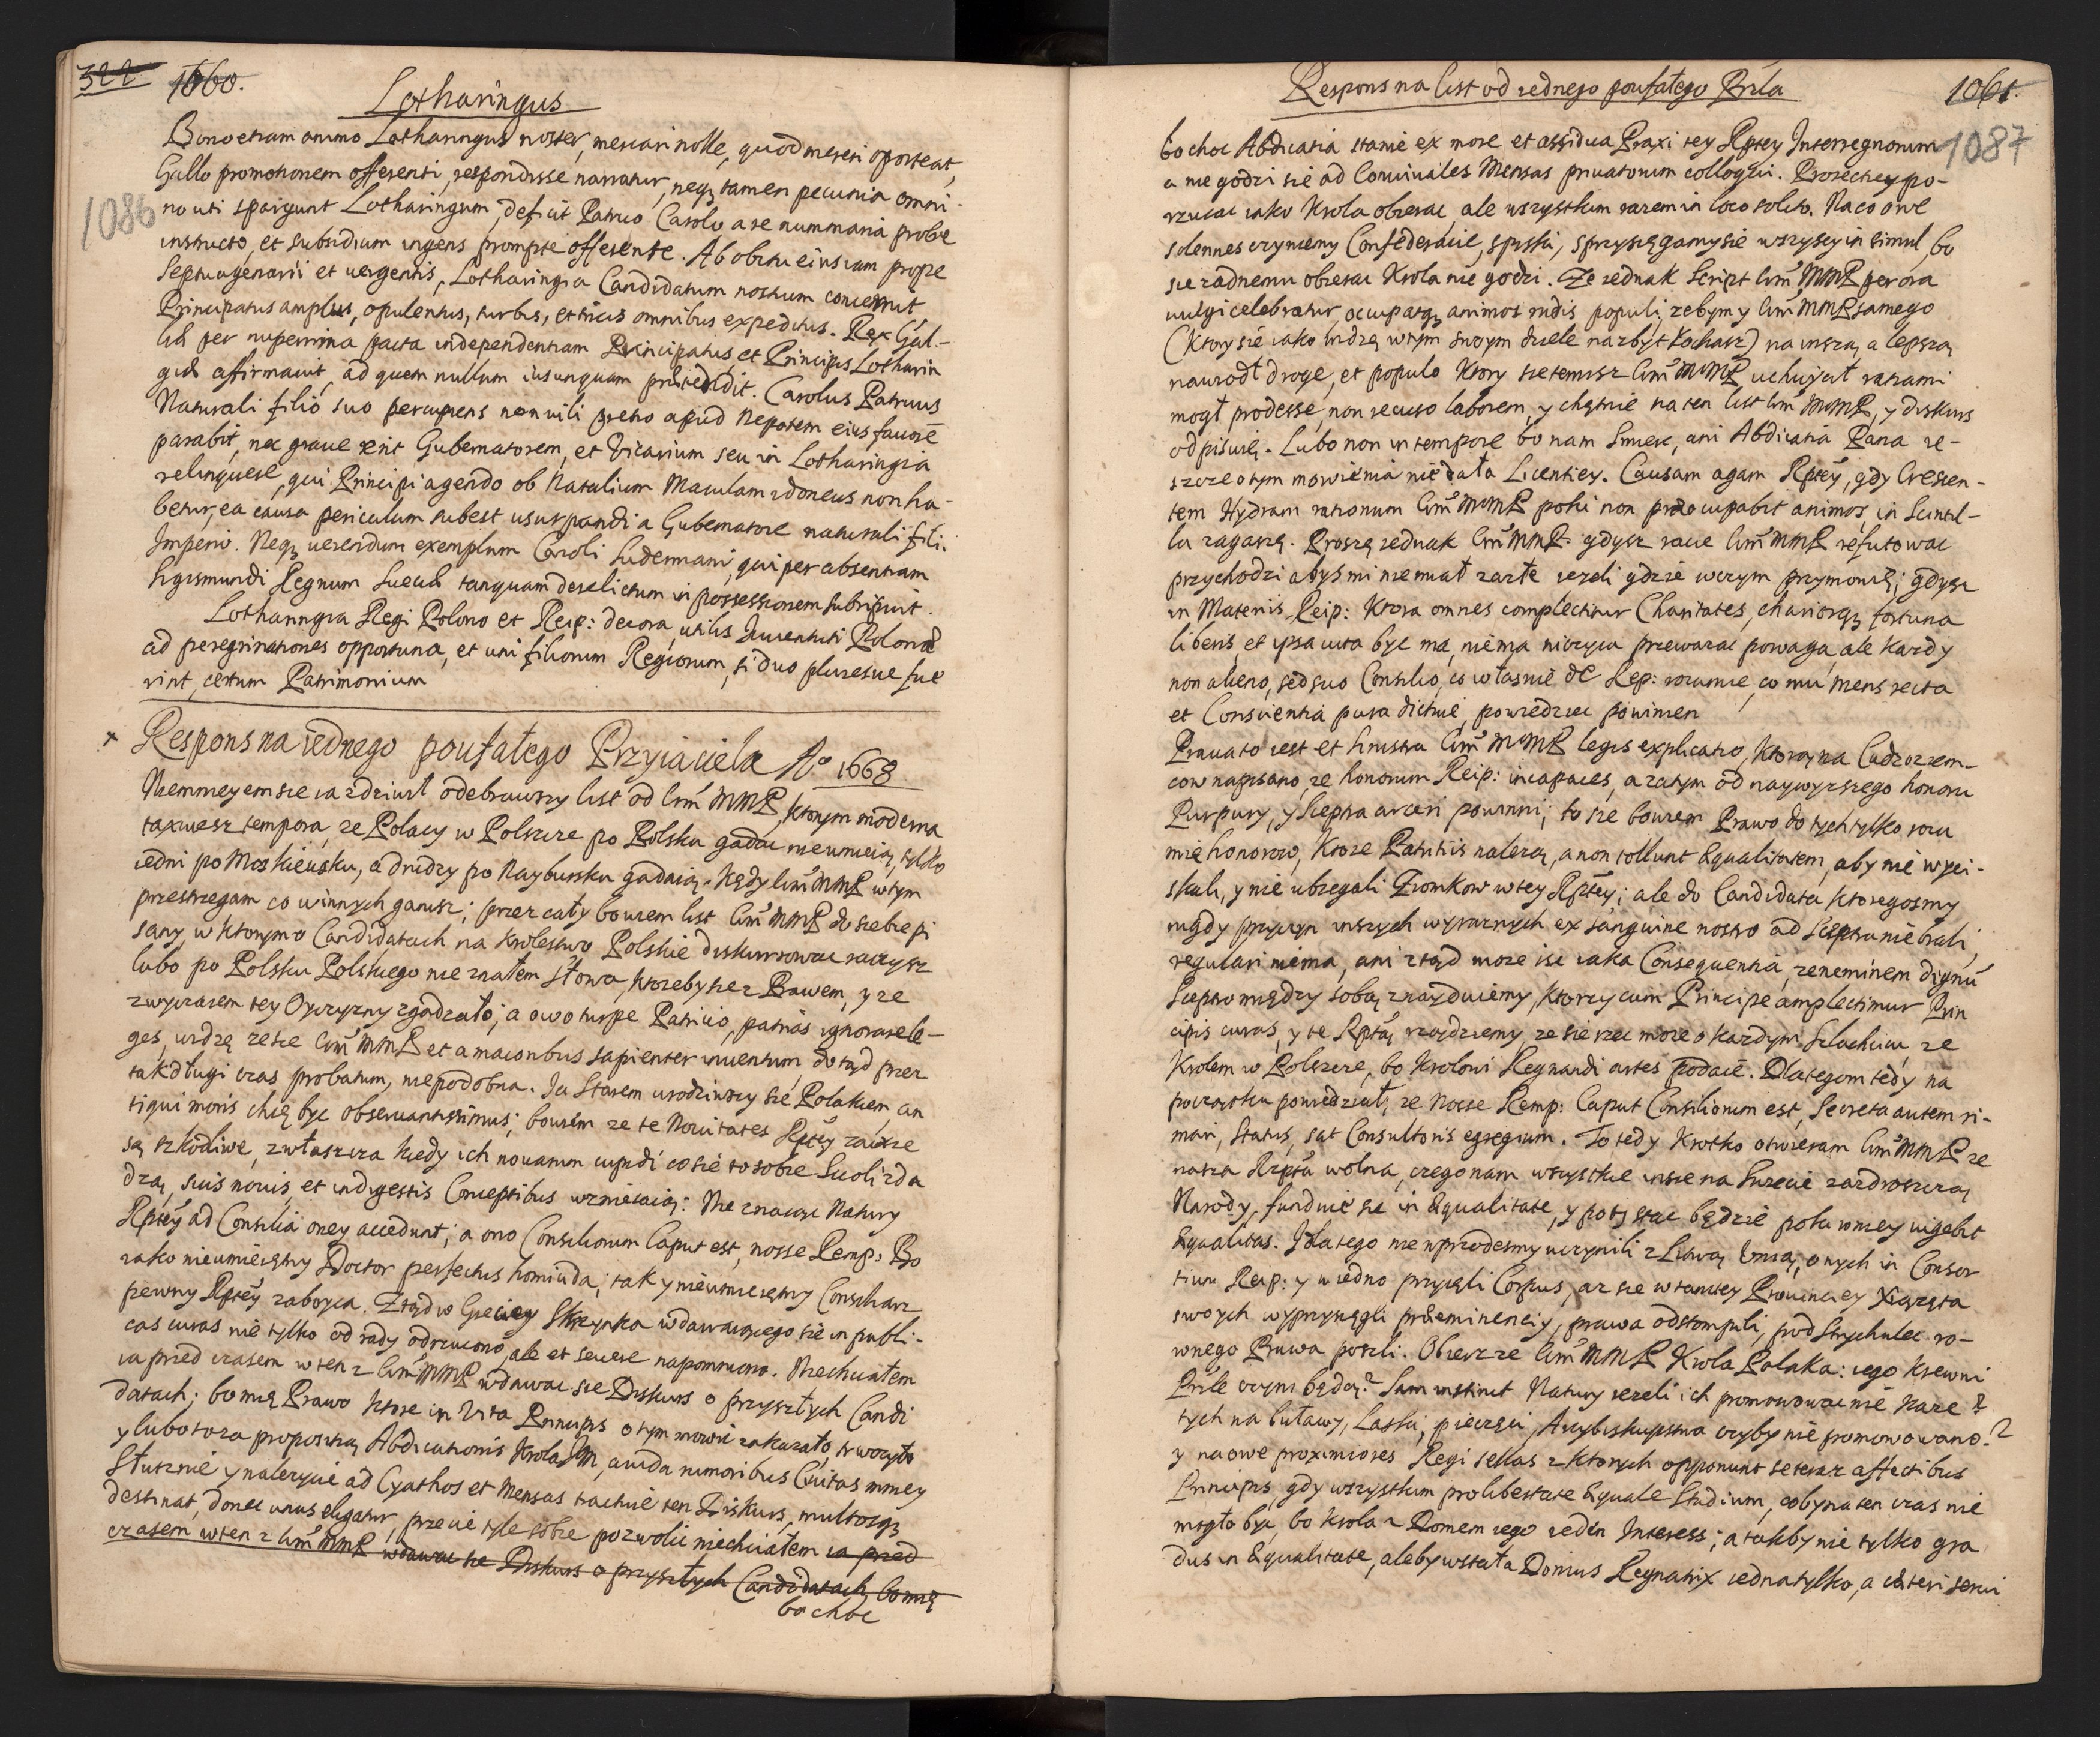 322 1060.
Lotharingus
Bono etiam animo Lotharingus noster, mercari nolle, quod mereri oporteat,
Gallo promotionem offerenti, respondisse narratur, neq tamen pecunia omni-
1086
no uti spargunt Lotharingum, deficit Patruo Carolo a re nummaria probe
instructo, et subsidium ingens prompte offerente. Ab obitu eius iam prope
Septuagenarii et vergentis, Lotharingia Candidatum nostrum concernit
Principatus amplus, opulentus, turbis, et tricis omnibus expeditus. Rex Gal-
liæ per nuperrima pacta independentiam Principatus, et Principis Lotharin
giæ affirmavit, ad quem nullum ius unquam prætendit. Carolus Patruus
Naturali filio suo percupiens non vili pretio apud Nepotem eius favore
parabit, nec grave erit Gubernatorem, et Vicarium seu in Lotharingia
relinquere, qui Principi agendo ob Natalium Maculam idoneus non ha-
betur, ea causa periculum subest usurpandi a Gubernatore naturali fili.
Imperio. Neq verendum exemplum Caroli Sudermani, qui per absentiam
Sigismundi Regnum Sueciæ tanquam derelictum in possessionem subripuit.
Lotharingia Regi Polono et Reip: decora, utilis Juventuti Polonæ
ad peregrinationes opportuna, et uni filiorum Regiorum, si duo pluresve fue
rint, certum Patrimonium
+ Respons na iednego poufałego Przyiaciela Ao 1668
Niemnieyem sie zadziwił odebrawszy list od Wm MMP, ktorym moderna
taxuiesz tempora, ze Polacy w Polszcze po Polsku gadac nieumieią, tylko
iedni po Moskiewsku, a drudzy po Raybursku gadaią. Kędy Wm MMP w tym
przestrzegam co w innych ganisz; przez cały bowiem list Wm MMP do siebie pi
sany, w ktorym o Candidatach na Krolestwo Polskie diskurrowac raczysz
lubo po Polsku Polskiego nie znałem słowa, ktoreby sie z Prawem, y ze
zwyczaiem tey Oyczyzny zgadzało; a owo turpe Patricio, patrias ignorare le-
ges, widzę ze sie Wm MMP et a maioribus sapienter inventum, dotąd przez
tak długi czas probatum, niepodoba. Ja Starem urodziwszy sie Polakiem, an
tiqui moris chcę byc observantissimus; bowiem ze te Novitates Rptey zawsze
są szkodliwe, zwłaszcza kiedy ich novarum cupidi co sie to sobie Swoli zda
dzą, suis novis, et indigestis Conceptibus wzniecaią: Nie znaiąc Natury
Rptey ad Consilia oney accedunt; a ono Consiliorum Caput est, nosse Remp: Bo
iako nieumieiętny Doctor perfectus homicida; tak y nieumieiętny Consiliarz
pewny Rptey zaboyca. Ztąd w Greciey Skrzypka wdawaiącego sie in publi-
cas curas nie tylko od rady odrzucono, ale et severe napomniono. Niechciałem
ia przed czasem w ten z Wm MMP wdawac sie Diskurs o przyszłych Candi
datach; bo mię Prawo ktore in Vita Principis o tym mowic zakazało, trwozyło
y lubo toza propositią Abdicationis Krola JM, avida rumoribus Civitas mniey
Słusznie y nalezycie ad Cyathos et Mensas tractuie ten Diskurs, multosq
destinat, donec unus eligatur, przecie tyle sobie pozwolic niechciałem ia przed
czasem w ten z Wm MMP wdawac sie Diskurs o przyszłych Candidatach, bo mię
bo choc
Respons na list od iednego poufałego Przla 1061.
bo choc Abdicatia stanie ex more et assidua Praxi tey Rptey Interregnorum 1087
a nie godzi sie ad Conviviales Mensas privatorum colloqui.
rzucac iako Krola obierac ale wszystkim razem in loco solito. Na co owe
solennes czyniemy Confederacie, spiski, sprzysięgamy sie wszyscy in simul, bo
sie zadnemu obierac Krola nie godzi. Ze iednak Script Wm MMP per ora
vulgi celebratur, occupatq animos rudis populi, zebym y Wm MMP samego
(Ktory sie iako widzę w tym swoym dziele nazbyt kochasz) na inszą, a lepszą
nawiodł drogę, et populo ktory sie temisz Wm MMP uchwycił ratiami
mogł prodesse, non recuso laborem, y chętnie na ten list Wm MMP, y diskurs
odpisuię. Lubo non in tempore bo nam Smierc, ani Abdicatia Pana ie-
szcze o tym mowienia nie dała Licentiey. Causam agam Rptey, gdy Crescen-
tem Hydram rationum Wm MMP poki non præocupabit animos in Scintil-
la zagaszę. Proszę iednak Wm MMP gdysz racie Wm MMP refutowac
przychodzi abys mi niemiał zazłe iezeli gdzie w czym przymowię; gdysz
in Materiis Reip: Ktora omnes complectitur Charitates, chariorq fortuna
liberis, et ipsa vita byc ma, niema niczyia przewazac powaga, ale kazdy
non alieno, sed suo Consilio, co własnie de Rep: rozumie, co mu mens recta
et Conscientia pura dictuie, powiedziec powinien
Prawa to iest et sinistra Wm MMP legis explicatio, ktorą na Cudzoziem-
cow napisano, ze honorum Reip: incapaces, a zatym od naywyzszego honoru
Purpury, y Sceptra arceri powinni; to sie bowiem Prawo do tych tylko rozu
mie honorow, ktore Patritiis nalezą, a non tollunt Æqualitatem, aby nie wyci-
skali, y nie ubiegali Ziomkow w tey Rptey; ale do Candidata ktoregosmy
nigdy przyczyn inszych wyraznych ex sanguine nostro ad Sceptra niebrali,
regulari niema, ani ztąd moze isc iaka Consequentia, ze neminem dignũ
Sceptro między sobą znayduiemy, ktorzy cum Principe amplectimur Prin
cipis curas, y te Rptą rządziemy, ze sie rzec moze o kazdym Slachcicu, ze
Krolem w Polszcze, bo Krolowi Regnandi artes podaie. Dlategom tedy na
początku powiedział, ze Nosse Remp: Caput Consiliorum est, Secreta autem ri-
mari, Status, sat Consultoris egregium. To tedy krotko otwieram Wm MMP ze
nasza Rzpta wolna, czego nam wszystkie insze na Swiecie zazdroszczą
Narody, funduie sie in Æqualitate, y poty stac będzie poki w niey vigebit
Æqualitas. Jdlatego nie wprzodesmy uczynili z Litwą Unią, onych in Consor
tium Reip: y w iedno przyięli Corpus, az sie w tamtey Prowinciey Xiązęta
swoych wyprzysięgli præeminenciy, prawa odstąmpili, pod Strychulec ro-
wnego Prawa poszli. Obierz ze Wm MMP Krola Polaka: iego krewni
Przle czym będą? Sam instinct Natury iezeli ich promowowac nie kaze?
tych na buławy, Laski, pieczęci, Arcybiskupstwa czyby nie promowowano?
y na owe proximiores Regi sellas z ktorych opponunt se affectibus
Principis, gdy wszystkim pro libertate Æquale Studium, coby na ten czas nie
mogło byc, bo krola z Domem iego ieden Interess; a takby nie tylko gra
dus in Æqualitate, aleby wstała Domus Regnatrix iedna tylko, a cæteri servi